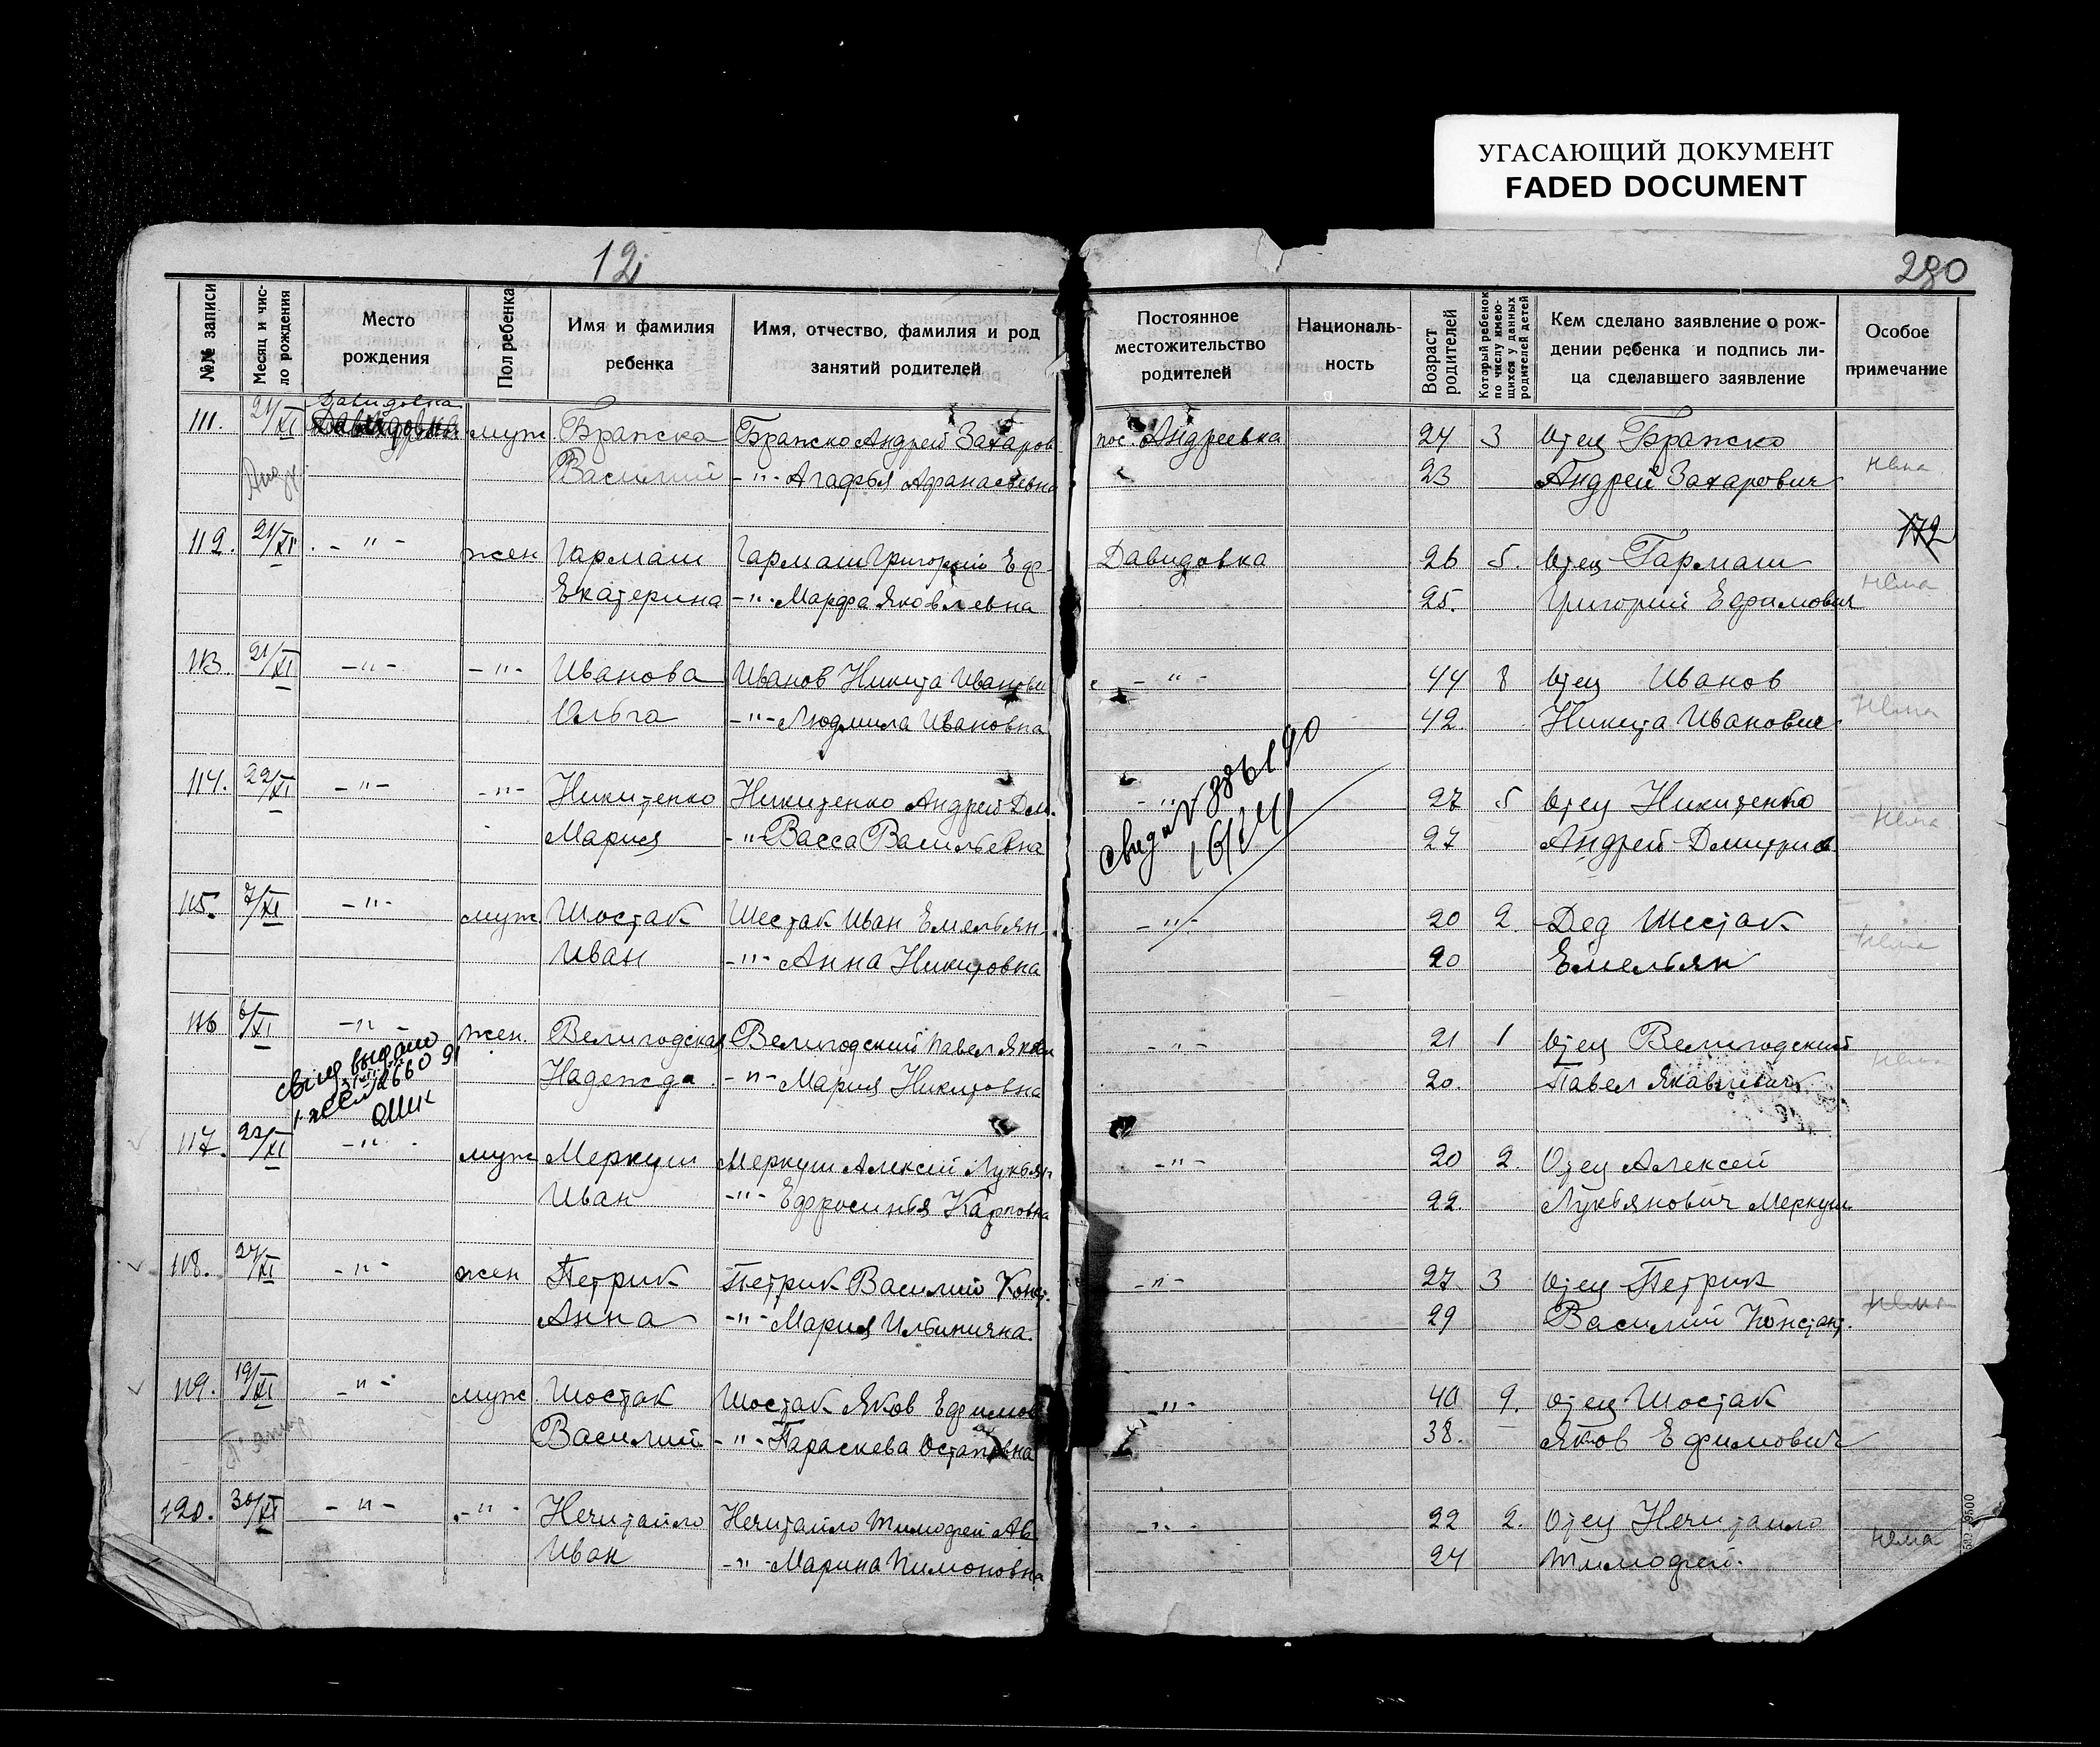 УГАСАЮЩИЙ ДОКУМЕНТ
FADED DOCUMENT
12
280
№№ записи
Месяц и чис-
ло рождения
Место
рождения
Пол ребенка
Имя и фамилия
ребенка
Имя, отчество, фамилия и род
занятий родителей
Постоянное
местожительство
родителей
Националь-
ность
Возраст
родителей
Который ребенок
по числу имею-
щихся у данных
родителей детей
Кем сделано заявление о рож-
дении ребенка и подпись ли-
ца сделавшего заявление
Особое
примечание
Давидовка
111. 21/XI муж. Бражско Бражско Андрей Захаров пос. Андреевка 24 3 Отец Бражско
Василий -"- Агафья Афанасьевна 23 Андрей Захарович
нема
172
112. 21/XI -"- жен Гармаш Гармаш Григорий Еф. Давидовка 26 5. Отец Гармаш
Екатерина -"- Марфа Яковлевна 25. Григорий Ефимович
нема
113. 21/XI -"- -"- Иванова Иванов Никита Иванови -"- 44 8 Отец Иванов
Ольга -"- Людмила Ивановна 42. Никита Иванович
нема
114. 22/XI -"- -"- Никитенко Никитенко Андрей Дм. -"- 27 5 Отец Никитенко
Мария -"- Васса Васильевна 27 Андрей Дмитрив
нема
115. 7/XI -"- муж Шостак Шестак Иван Емельян. -"- 20 2. Дед Шестак
Иван -"- Анна Никитовна 20 Емельян
нема
116 6/XI -"- жен. Велигодская Велигодский Павел Яков -"- 21 1 Отец Велигодский
Надежда -"- Мария Никитовна 20. Павел Яковлевич
нема
117. 22/XI -"- муж Меркуш Меркуш Алексей Лукьян -"- 20 2. Отец Алексей
Иван -"- Ефросинья Карповна 22. Лукьянович Меркуш.
118. 24/XI -"- жен Петрик Петрик Василий Конст. -"- 27 3 Отец Петрик
Анна -"- Мария Ильинична. 29 Василий Констант.
нема
119. 19/XI -"- муж. Шостак Шостак Яков Ефимов -"- 40 9. Отец Шостак
Василий -"- Параскева Остаповна 38. Яков Ефимович
120. 30/XI -"- -"- Нечитайло Нечитайло Тимофей Ав. -"- 22 2. Отец Нечитайло
Иван -"- Марина Пимоновна 24 Тимофей.
нема